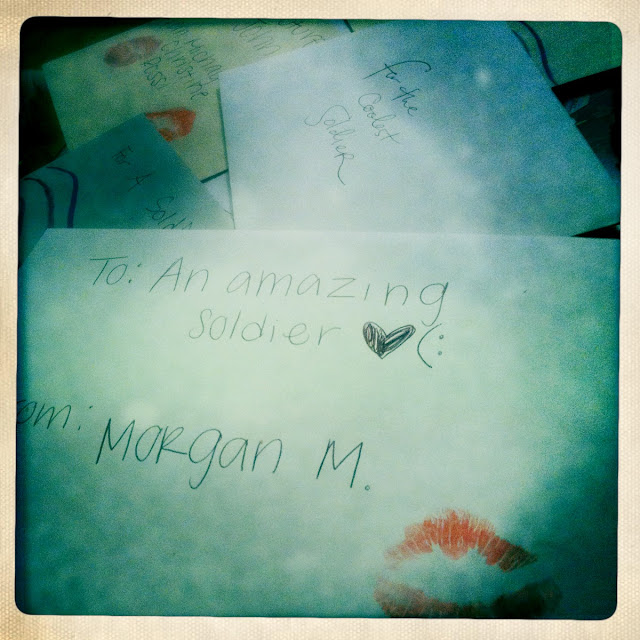 For the
Coolest
Soldier
For A
Soldi
To: An amazing
soldier (:
om:
Morgan M.